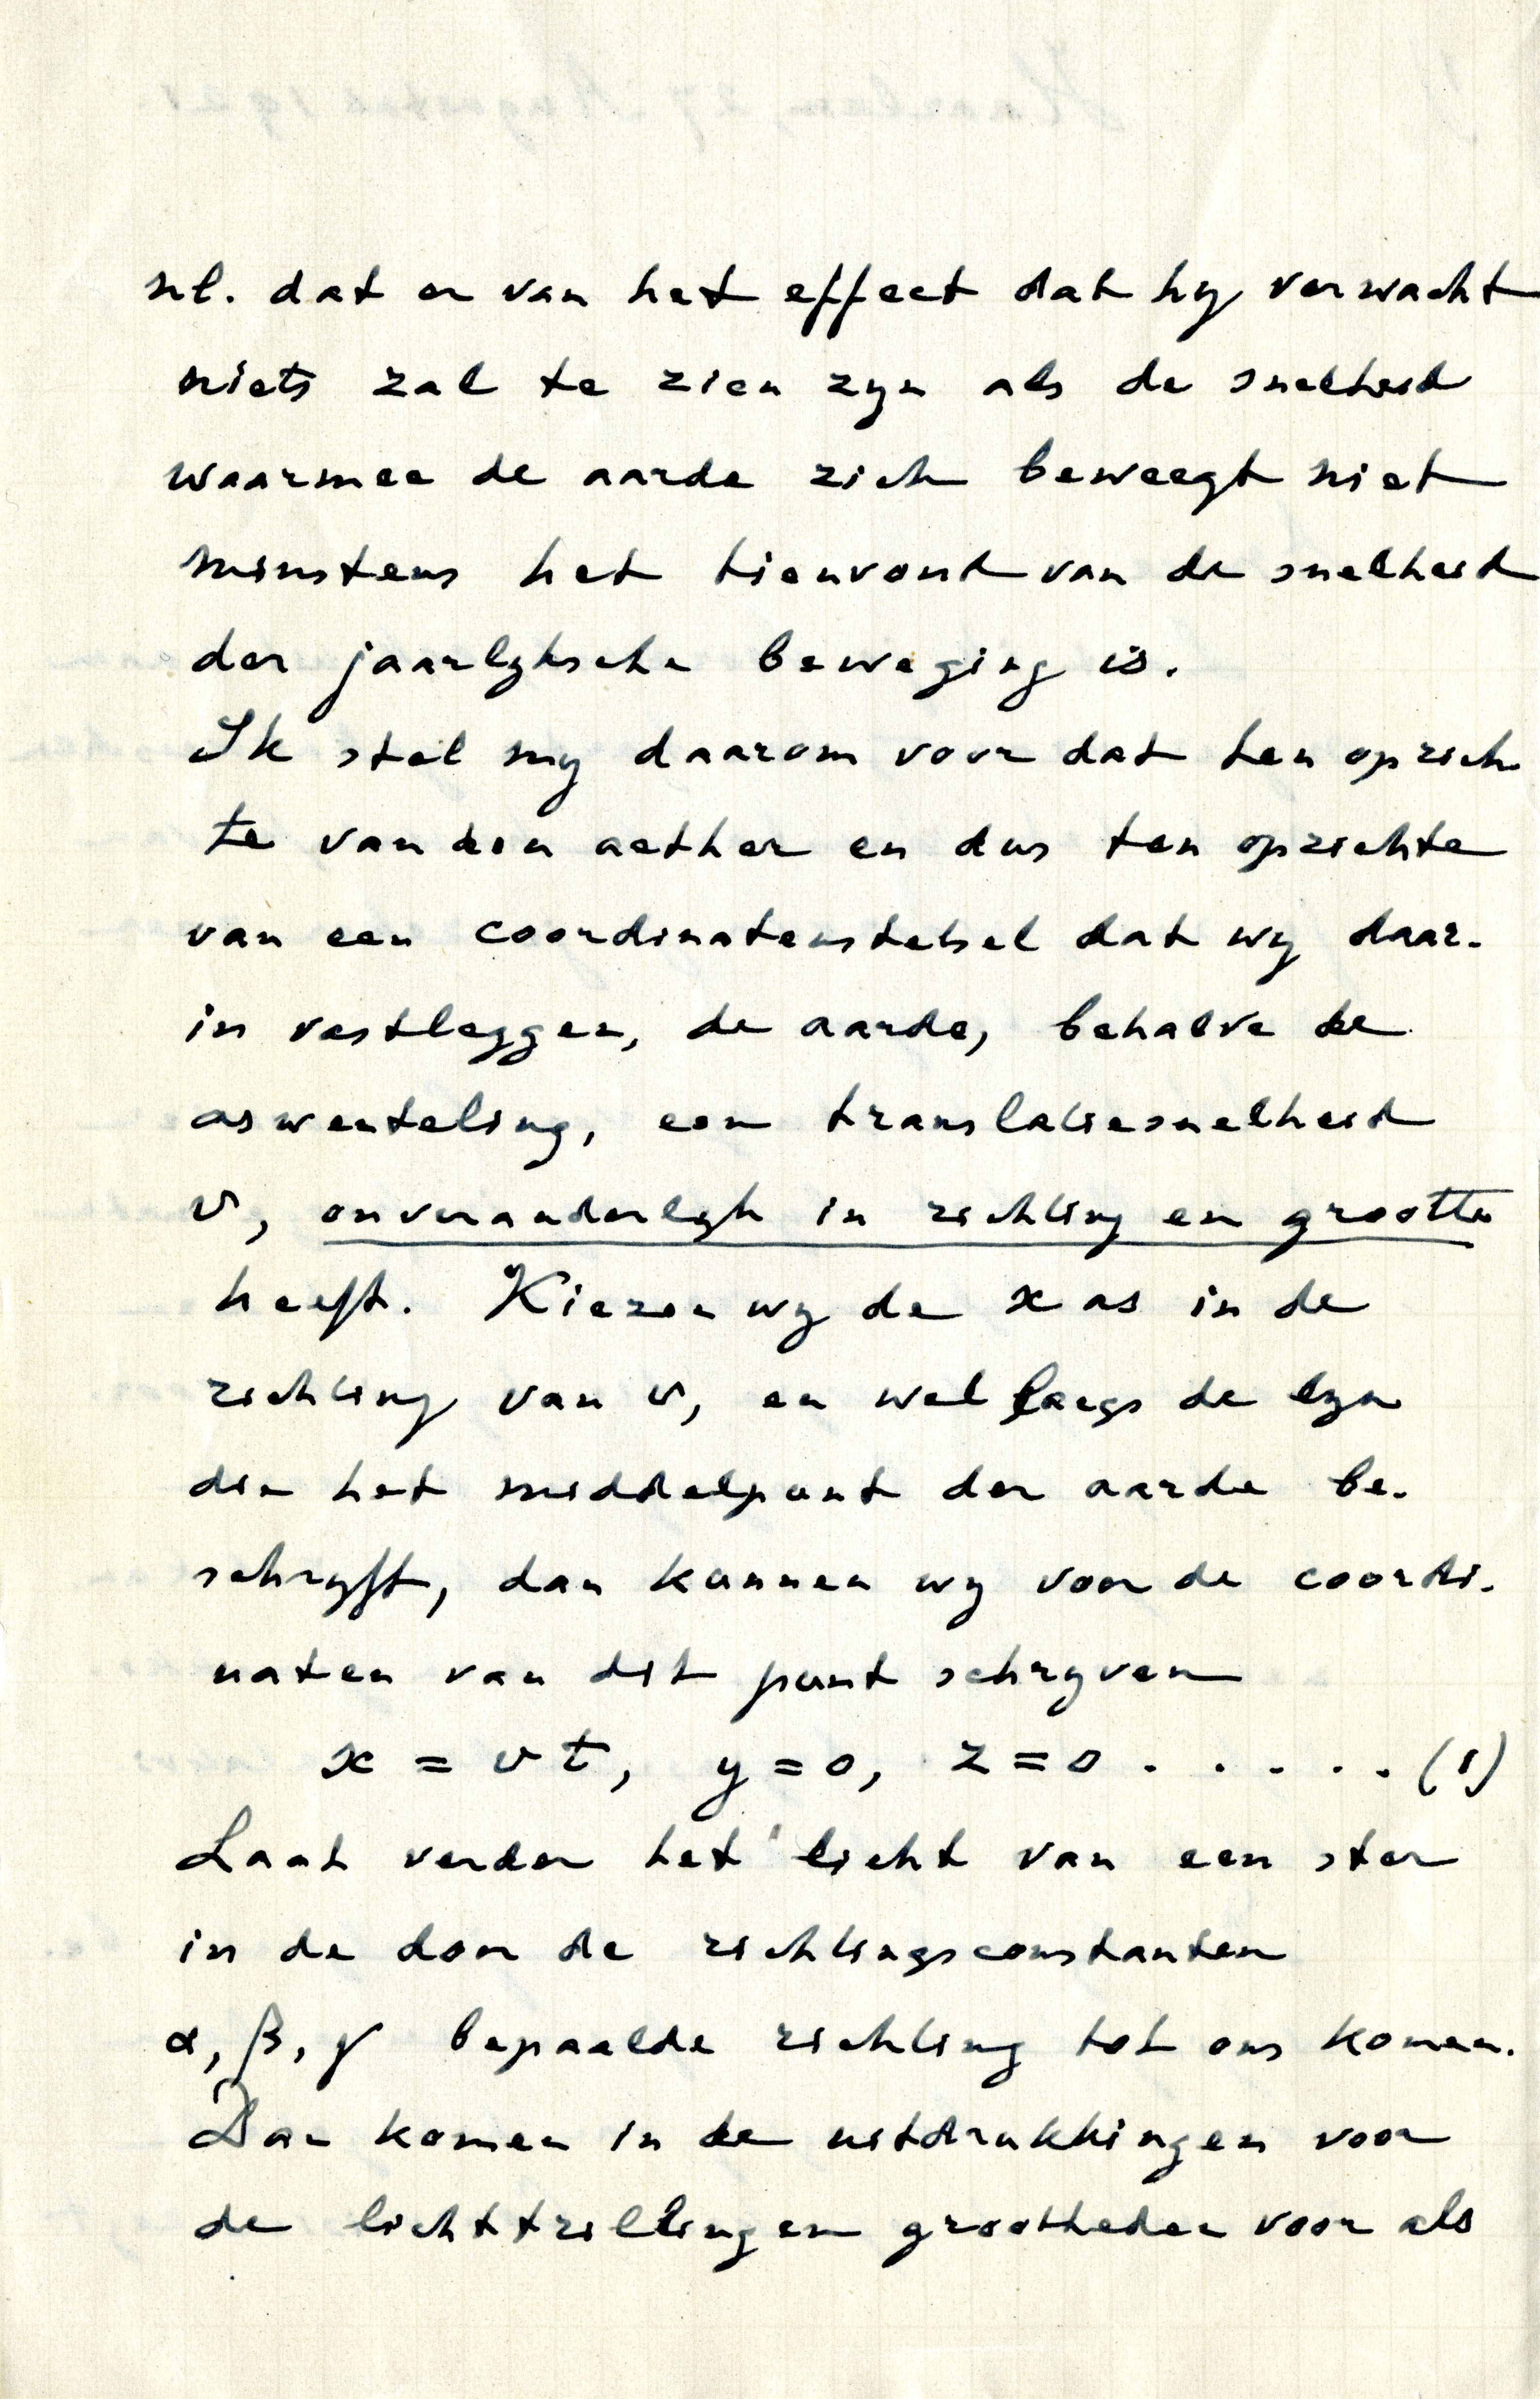 nl. dat er van het effect dat hy verwacht
niets zal te zien zyn als de snelheid
waarmee de aarde zich beweegt niet
minstens het tienvoud van de snelheid
der jaarlyksche beweging is.
Ik stel my daarom voor dat ten opzich
te van den aether en dus ten opzichte
van een coordinatenstelsel dat wy daar-
in vastleggen, de aarde, behalve de
aswenteling, een translatiesnelheid
v, onveranderlyk in richting en grootte
heeft. Kiezen wy de x as in de
richting van v, en wel langs de lyn
die het middelpunt der aarde be-
schryft, dan kunnen wy voor de coordi-
naten van dit punt schryven
x = vt, y = 0, z = 0 . . . . . (1)
Laat verder het licht van een ster
in de door de richtingsconstanten
α, β, γ bepaalde richting tot ons komen.
Dan komen in de uitdrukkingen voor
de lichttrillingen grootheden voor als